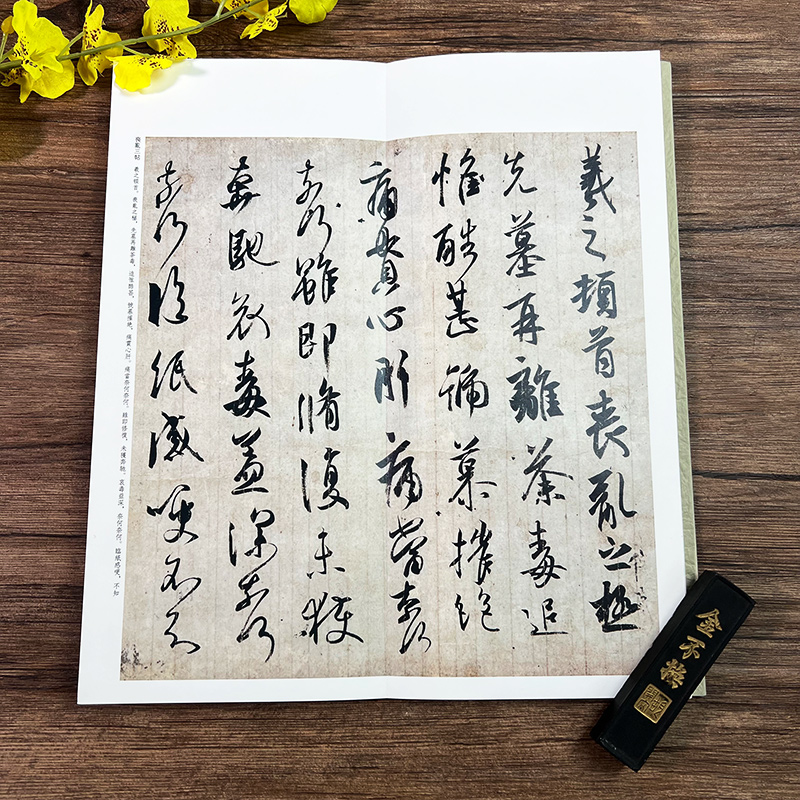 羲之頓首喪亂之極
先墓再離荼毒追
惟酷甚號慕摧絶
痛貫心肝痛當奈何
奈何雖即脩復未獲
奔馳哀毒益深奈何
奈何臨紙感哽不知
喪亂三帖 羲之頓首。喪亂之極，先墓再離荼毒，追惟酷甚，號慕摧絶，痛貫心肝，痛當奈何奈何。雖即修復，未獲奔馳，哀毒益深，奈何奈何。臨紙感哽，不知
金不換